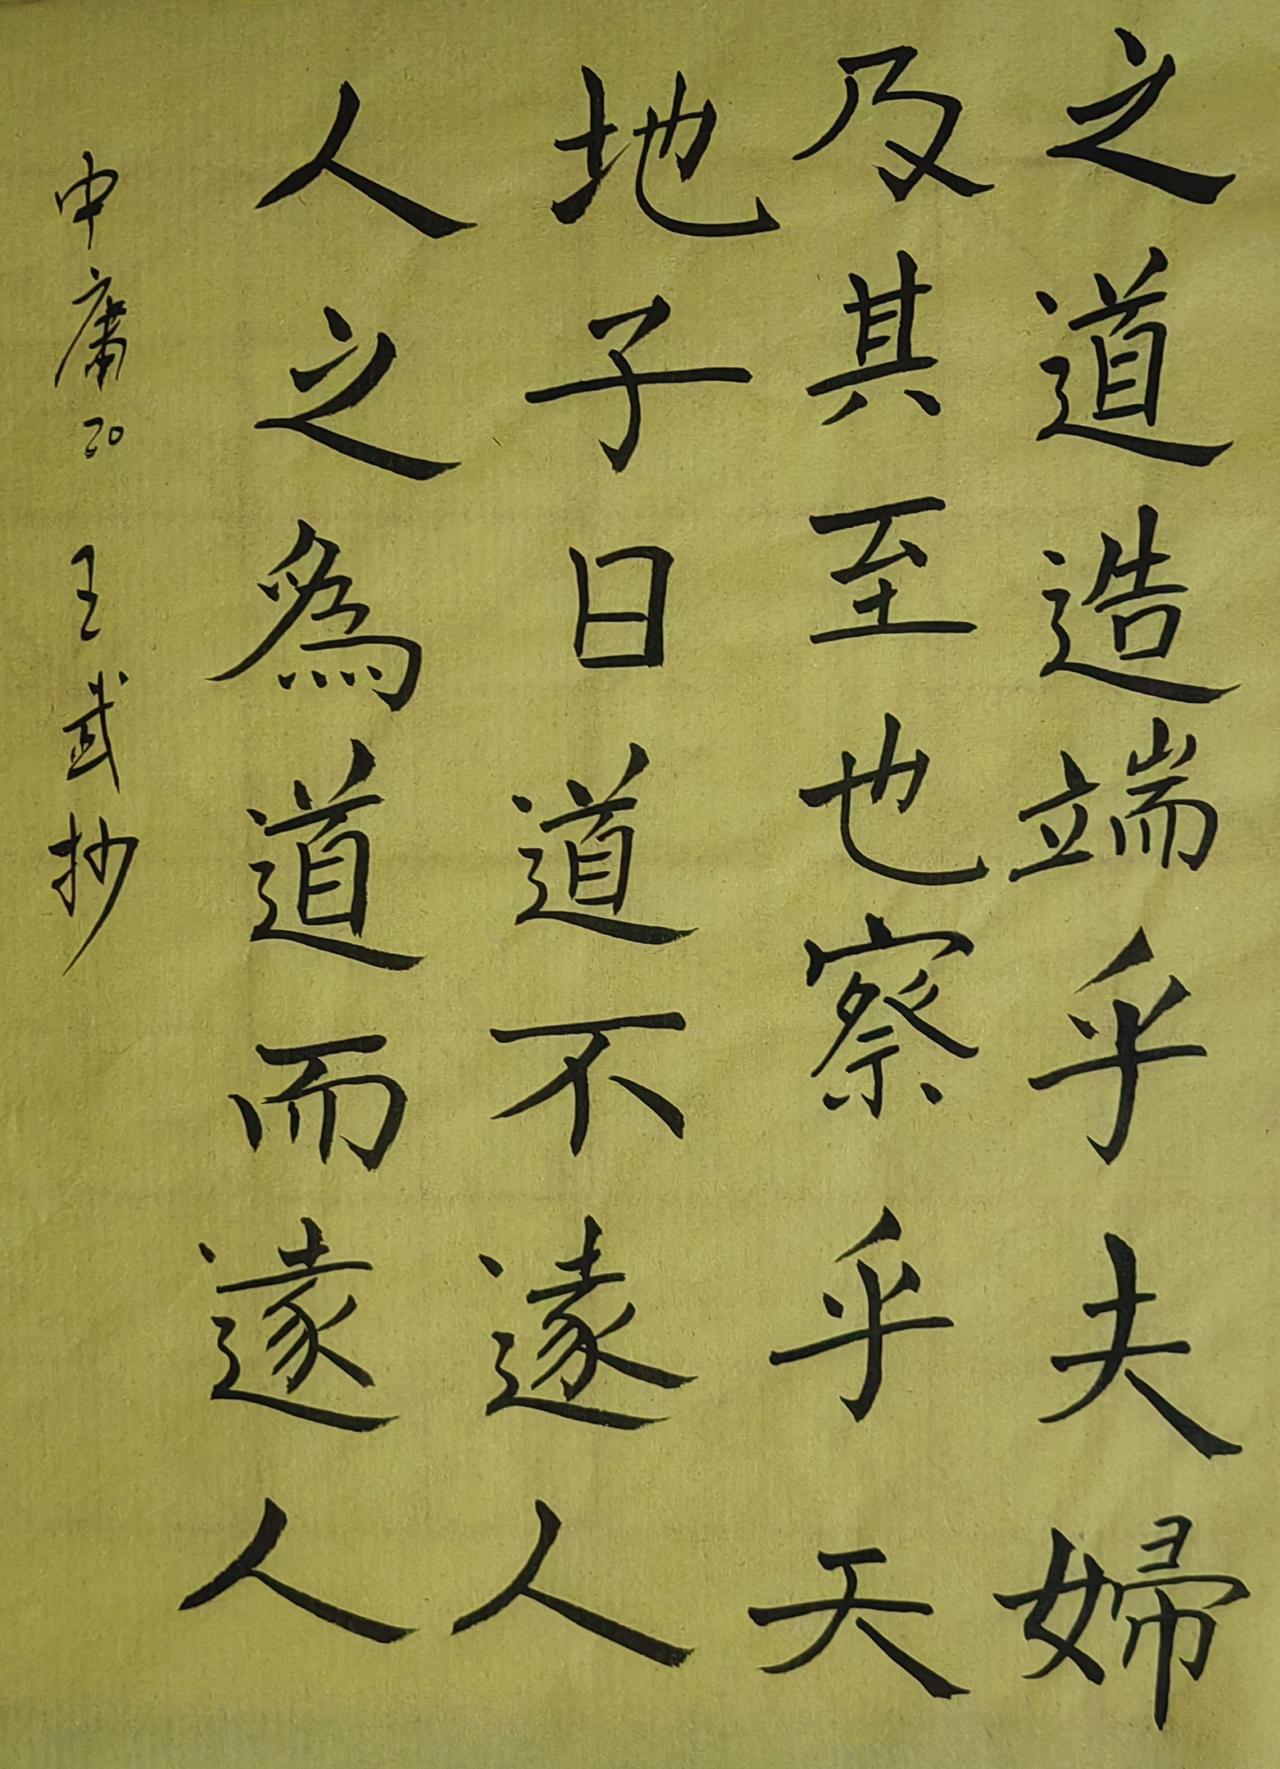 之道造端乎夫婦
及其至也察乎天
地子曰道不遠人
人之為道而遠人
中庸20 王武抄